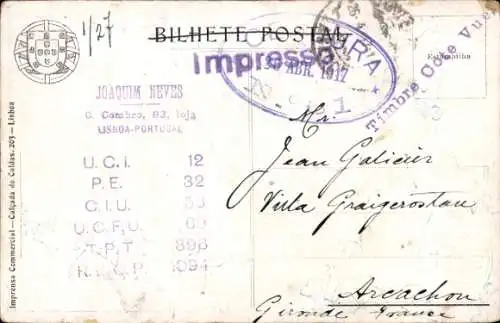 1/27
BILHETE POSTAL
Impresso
Timbre Côte Vue
JOAQUIM NEVES
C. Combro, 93, loja
LISBOA-PORTUGAL
ABR. 1917
1
U.C.I. 12
P.E. 32
C.I.U.
U.C.F.U.
T.P.T. 896
1094
Mr.
Jean Galicier
Villa Graigcrostan
Arcachon
Gironde France
Imprensa Commercial — Calçada do Caldas, 203 — Lisboa